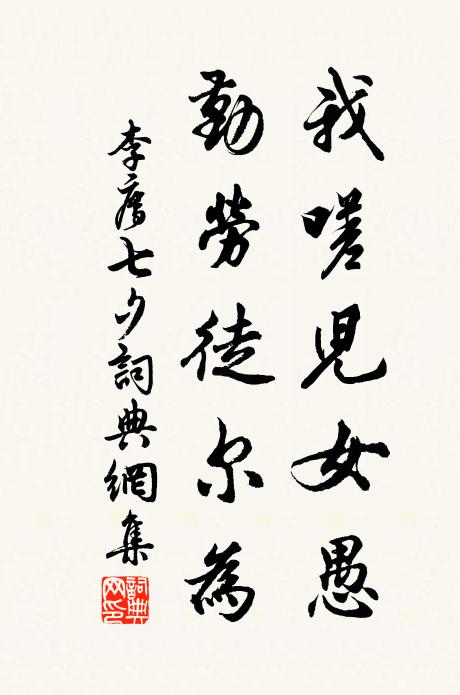 我嗟兒女愚
勤勞徒尔為
李廌七夕詞典網集
詞典网印